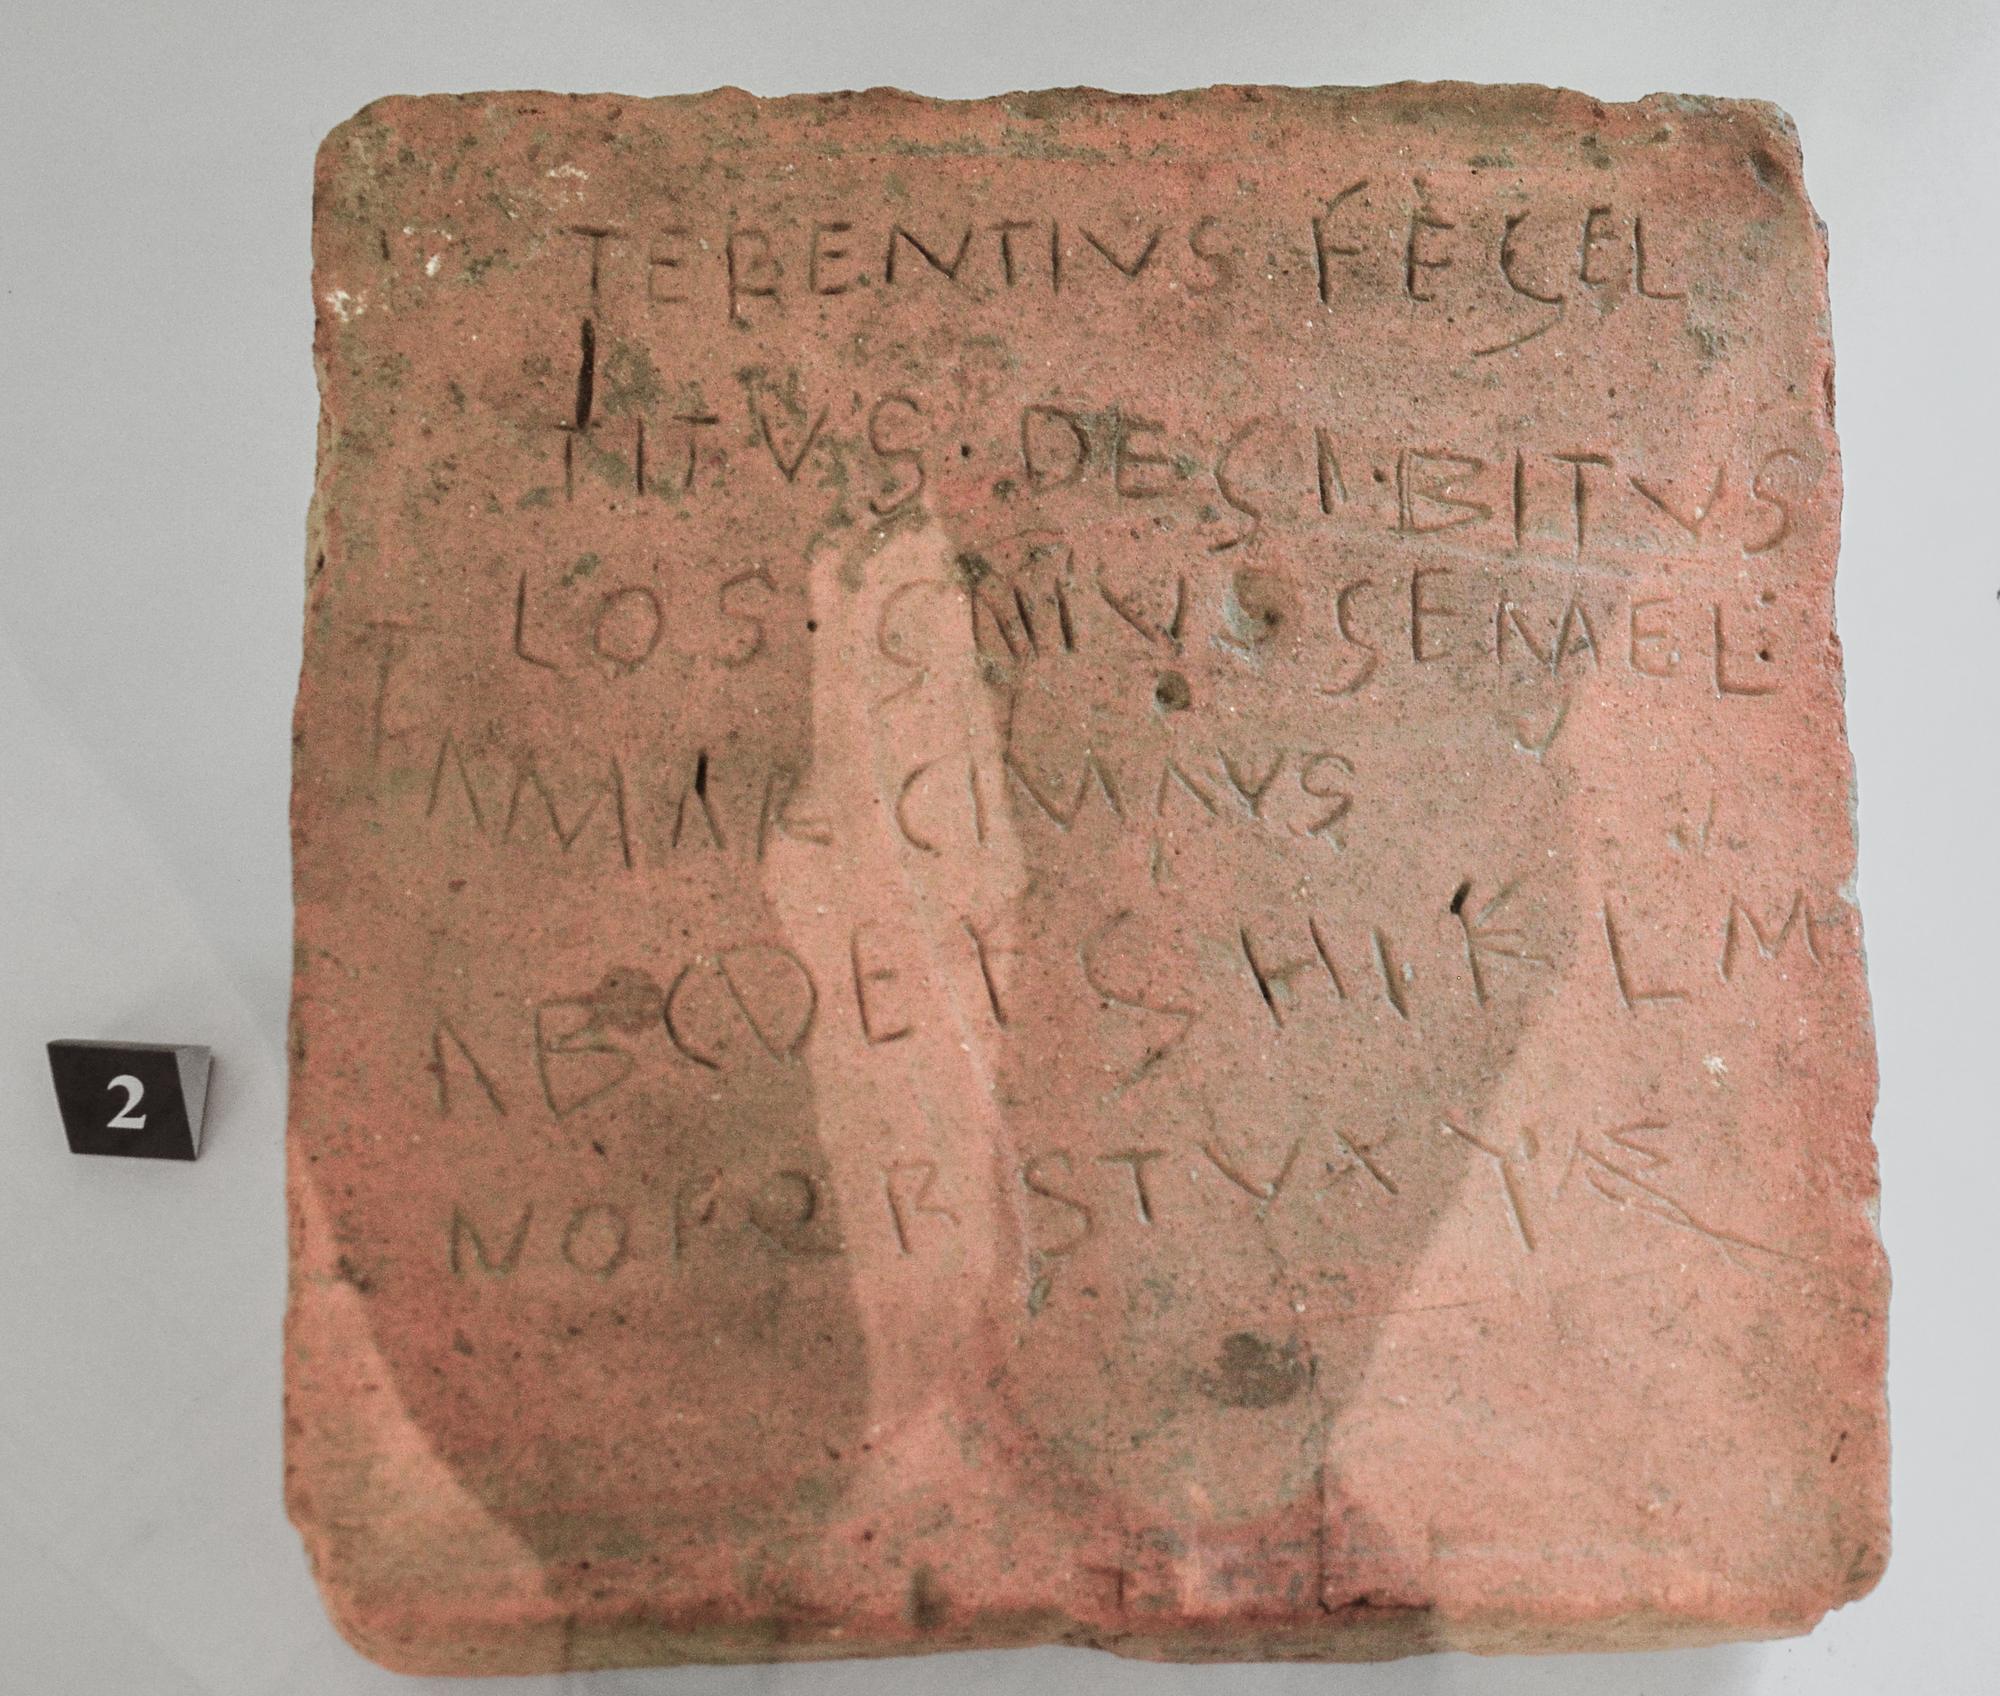 TERENTIVS FEGEL
TITVS · DEGI · BITVS
LOS · GNIVS SEMEL ·
TAMAR CIMAVS
ABCDEFGHIKLM
NOPQRSTVXY
2